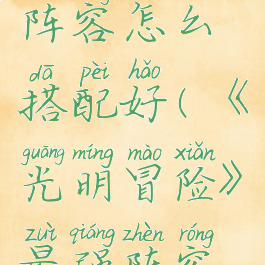 阵容怎么
dā pèi hǎo
搭配好(《
guāng míng mào xiǎn
光明冒险》
zuì qiáng zhèn róng
最强阵容